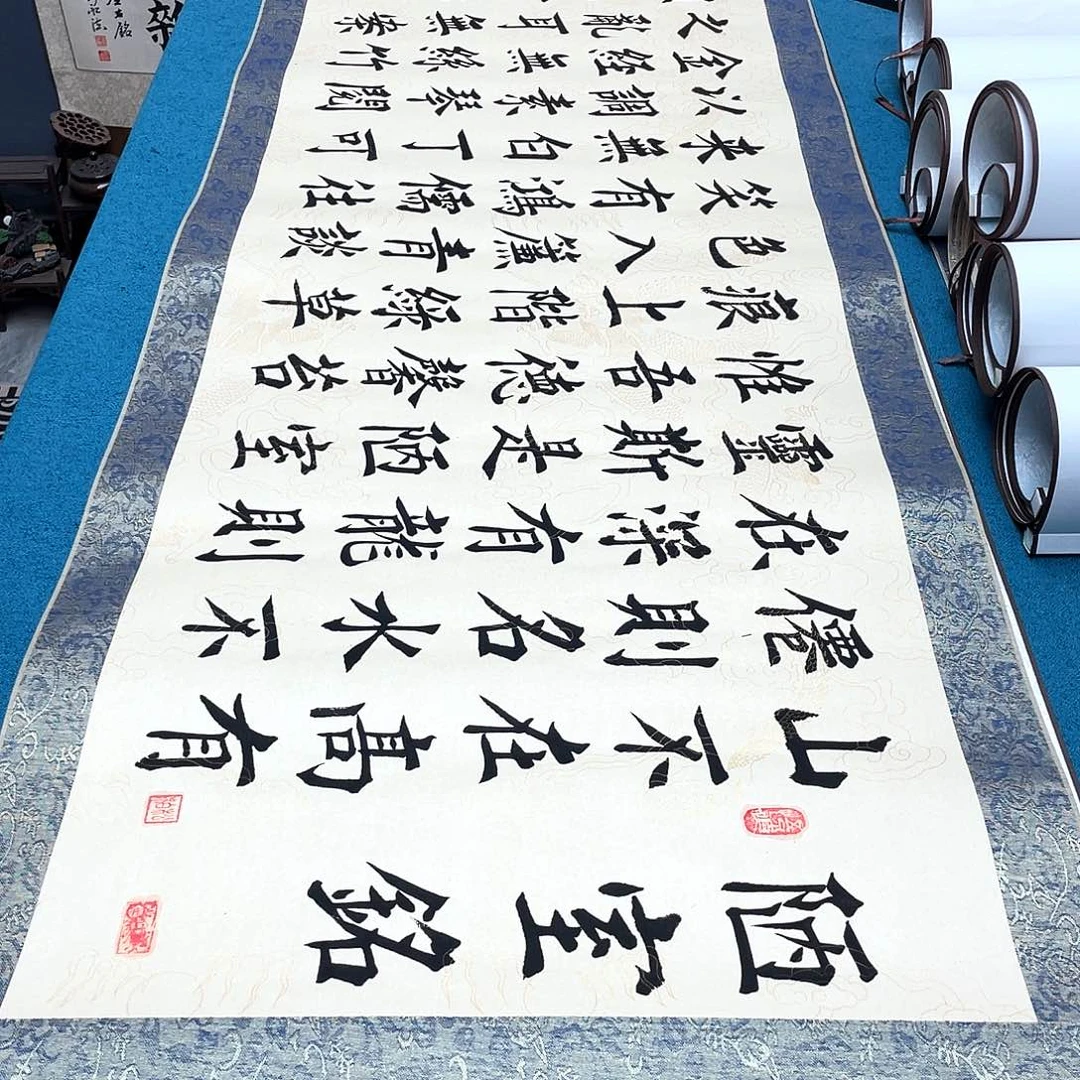 陋室銘
山不在高有
僊則名水不
在深有龍則
靈斯是陋室
惟吾德馨苔
痕上階綠草
色入簾青談
笑有鴻儒往
来無白丁可
以調素琴閱
金經無絲竹
之亂耳無案